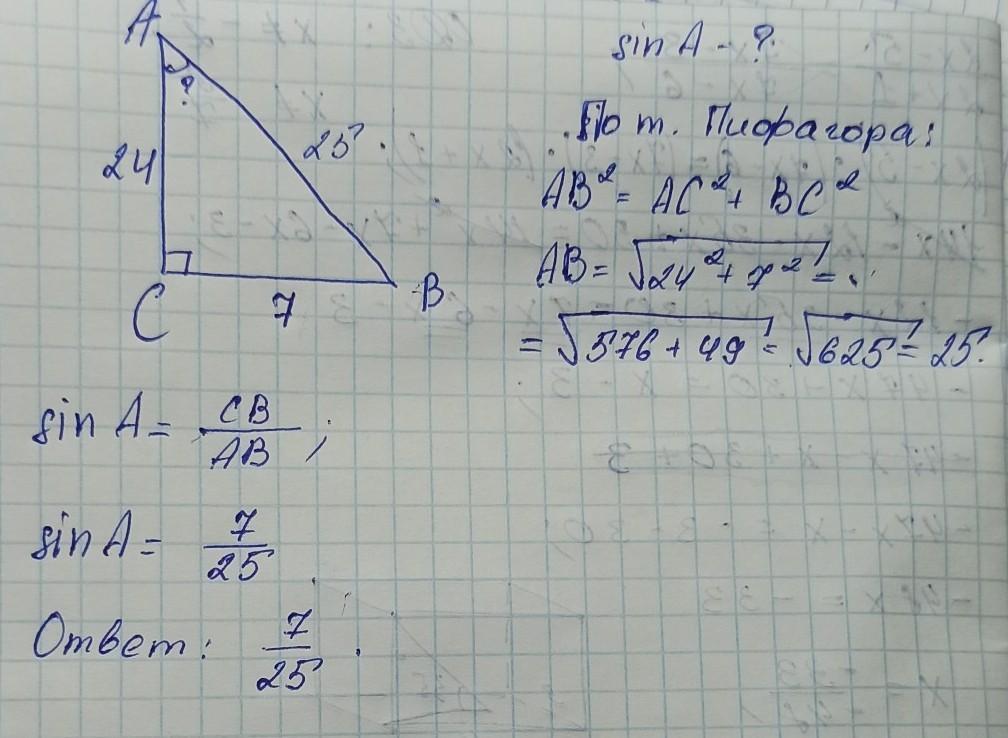 sin A - ?
A
?
24
25
C
7
B
По т. Пифагора:
AB² = AC² + BC²
AB = √24² + 7² =
= √576 + 49 = √625 = 25.
sin A = CB/AB ;
sin A = 7/25
Ответ: 7/25 .